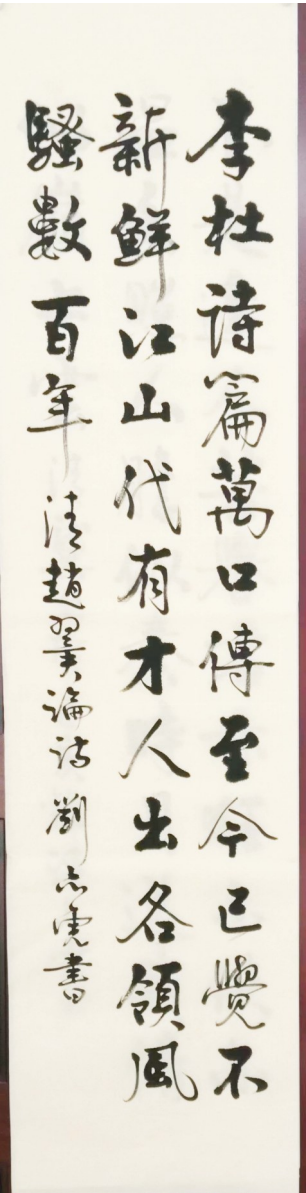 李杜詩篇萬口傳至今已覺不
新鮮江山代有才人出各領風
騷數百年 清趙翼論詩 劉志虎書